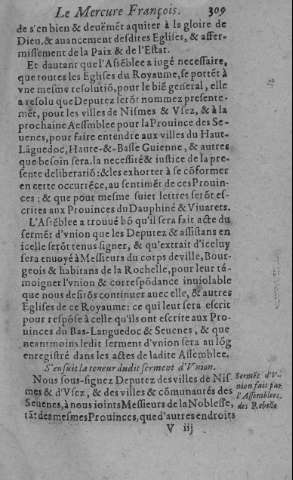 Le Mercure François. 309
de s'en bien & deuëmët aquiter à la gloire de
Dieu, & auancement desdites Eglises, & affer-
missement de la Paix & de l'Estat.
Et dautant que l'Asiëblee a iogé necessaire,
que toutes les Eglises du Royaume, se portët à
vne mesme resolutiõ, pour le biẽ general, elle
a resolu que Deputez serõt nommez presente-
mẽt, pour les villes de Nismes & Vsez, & à la
prochaine Aessmblee pour la Prouince des Se-
uenes, pour faire entendre aux villes du Haut-
Lãguedoc, Haute-& Basse Guienne, & autres
que besoin sera, la necessité & iustice de la pre-
sente deliberatiõ: & les exhorter à se cõformer
en cette occurrẽce, au sentimẽt de ces Prouin-
ces ; & que pour mesme suiet lettres serõt es-
crites aux Prouinces du Dauphiné & Viuarets.
L'Asiẽblee a trouué bõ qu'il sera fait acte du
sermẽt d'vnion que les Deputez & assistans en
icelle serõt tenus signer, & qu'extrait d'iceluy
sera enuoyé à Messieurs du corps de ville, Bour-
geois & habitans de la Rochelle, pour leur té-
moigner l'vnion & correspõdance inuiolable
que nous desirõs continuer auec elle, & autres
Eglises de ce Royaume: ce qui leur sera escrit
pour respõse à celle qu'ils ont escrite aux Pro-
uinces du Bas-Languedoc & Seuenes, & que
neantmoins ledit serment d'vnion sera au lõg
enregistré dans les actes de ladite Assemblee.
S'ensuit la teneur dudit serment d'Vnion.
Nous sous-signez Deputez des villes de Nis-
mes & d'Vsez, & des villes & cõmunautés des
Seuenes, à nous ioints Messieurs de la Noblesse,
tãt des mesmes Prouinces, que d'autres endroits
V iij
Sermẽt d'V-
nion fait par
l'Assemblee,
des Rebelle